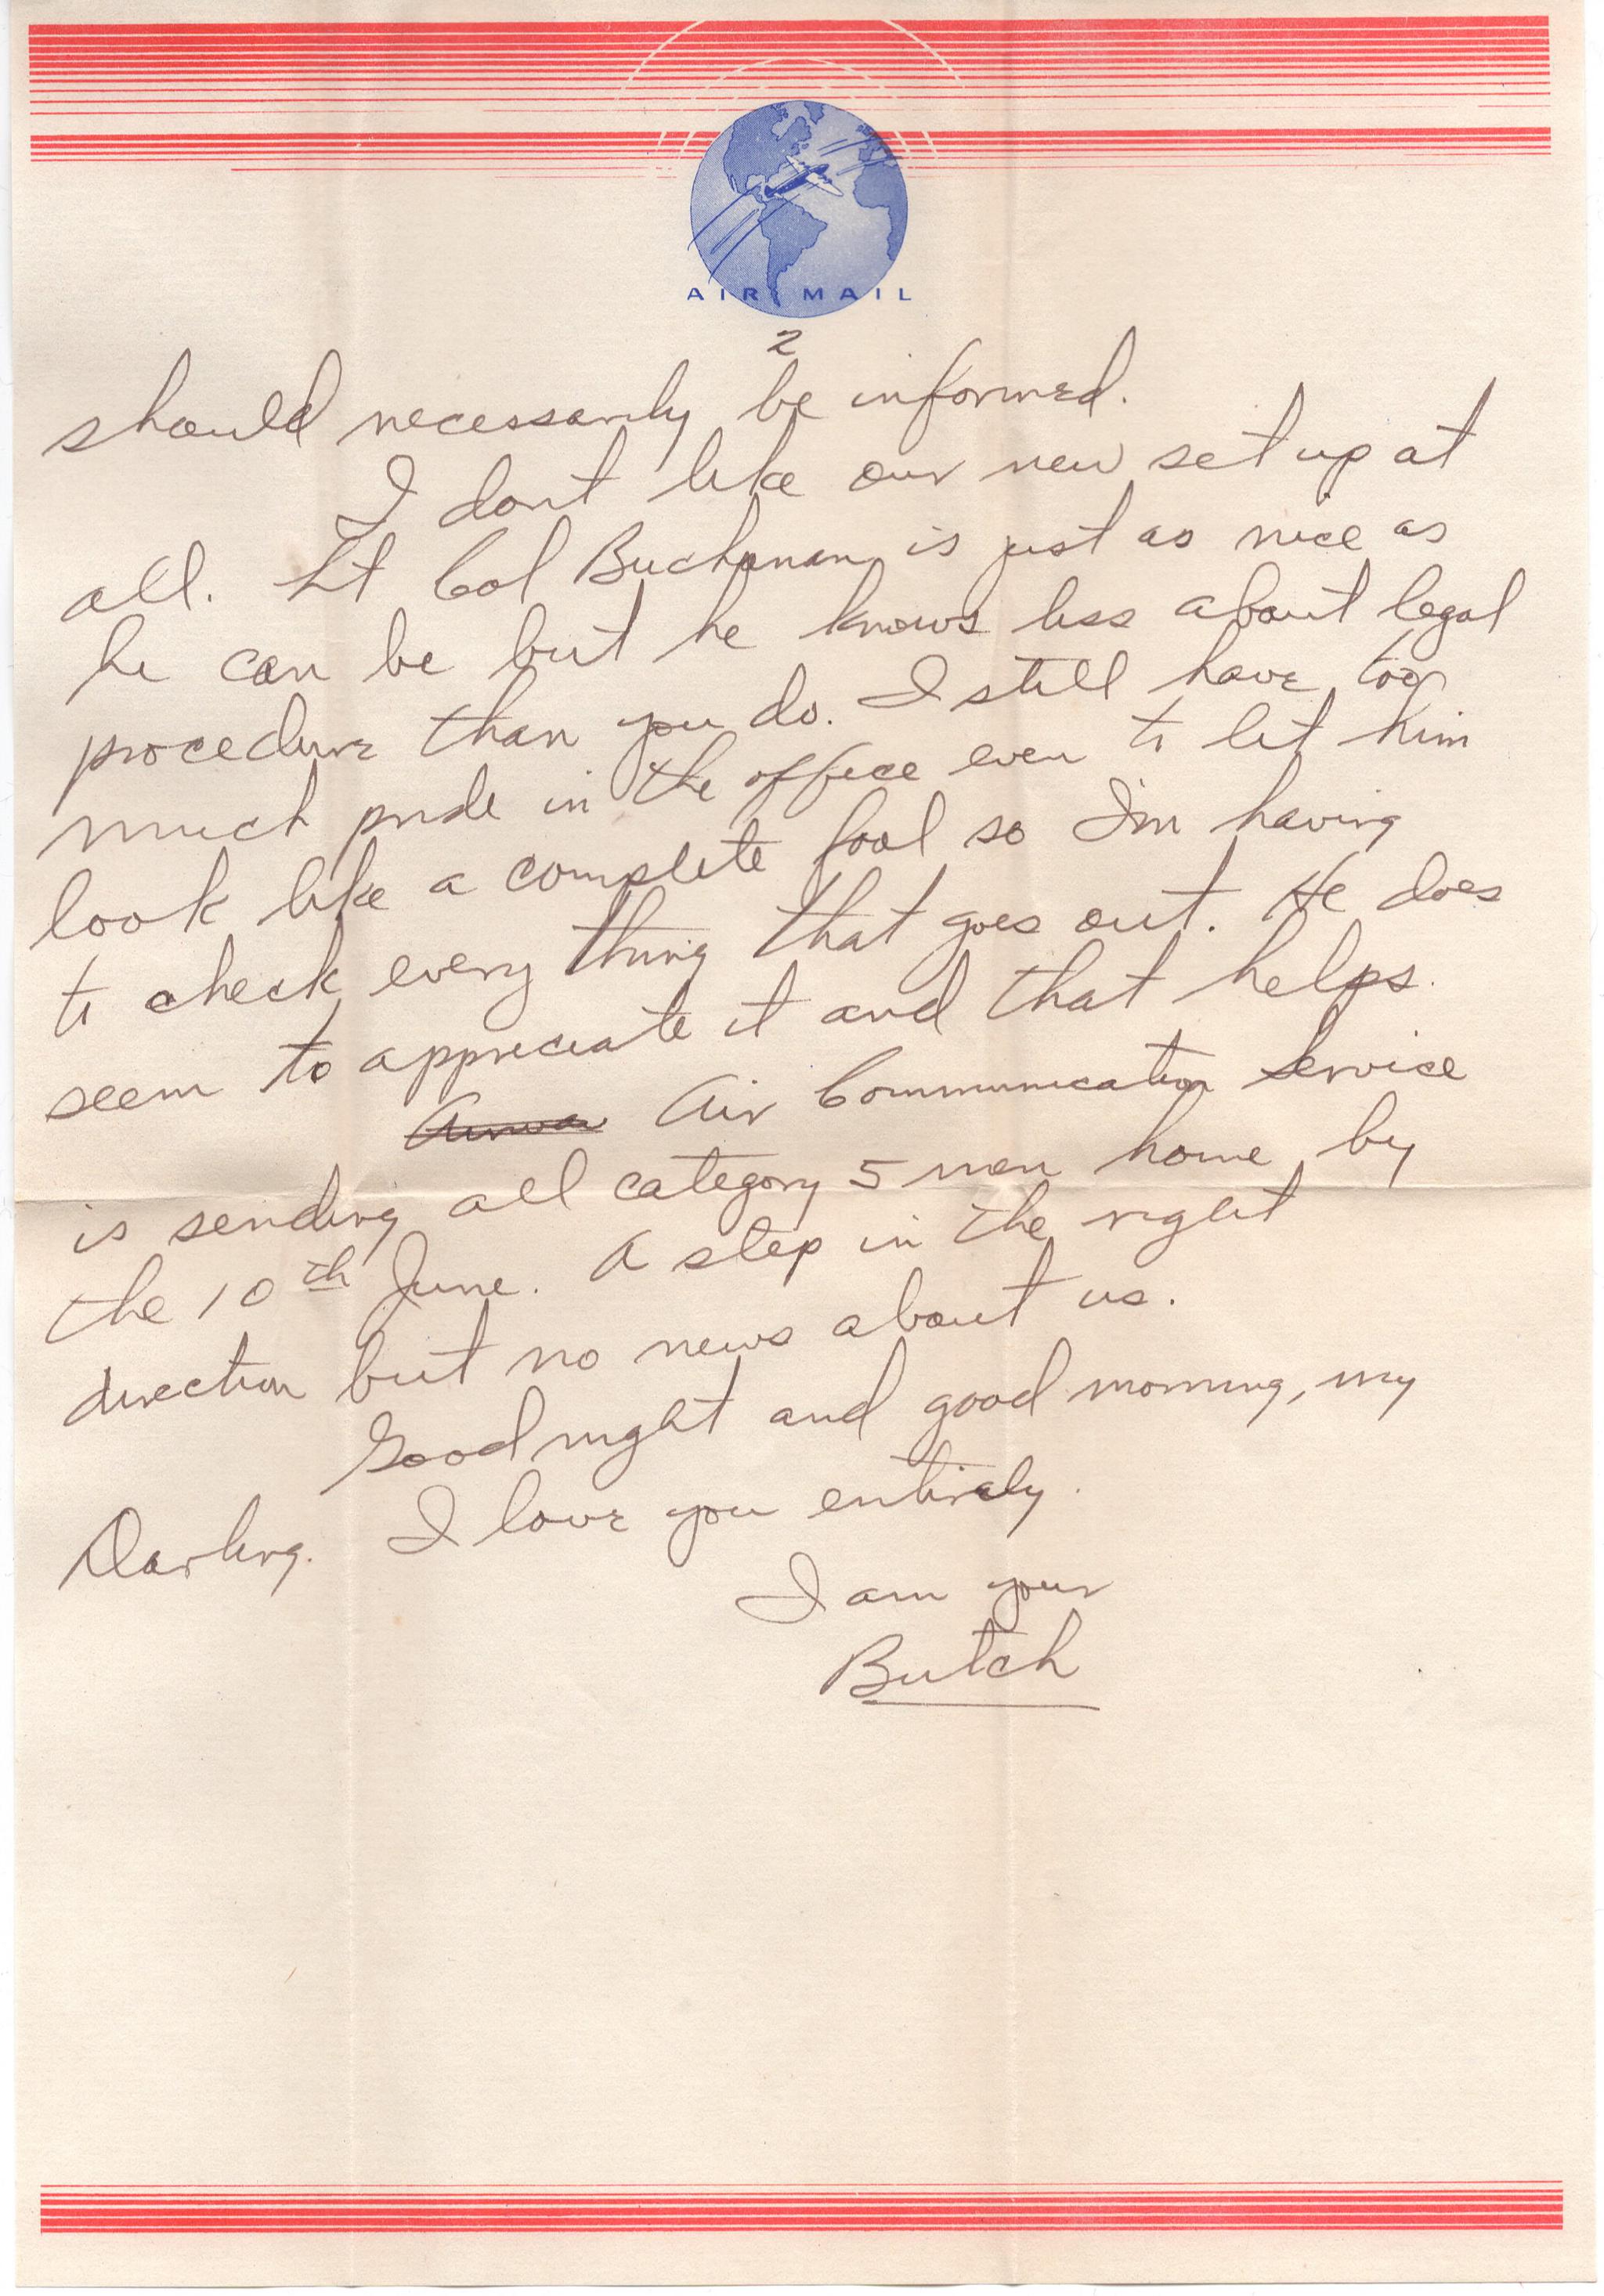 AIR MAIL
2
should necessarily be informed.
I dont like our new set up at
all. Lt Col Buchanan is just as nice as
he can be but he knows less about legal
procedure than you do. I still have too
much pride in the office even to let him
look like a complete fool so I'm having
to check every thing that goes out. He does
seem to appreciate it and that helps.
Air Communication Service
is sending all category 5 men home by
the 10th June. A step in the right
direction but no news about us.
Good night and good morning, my
Darling. I love you entirely.
I am your
Butch